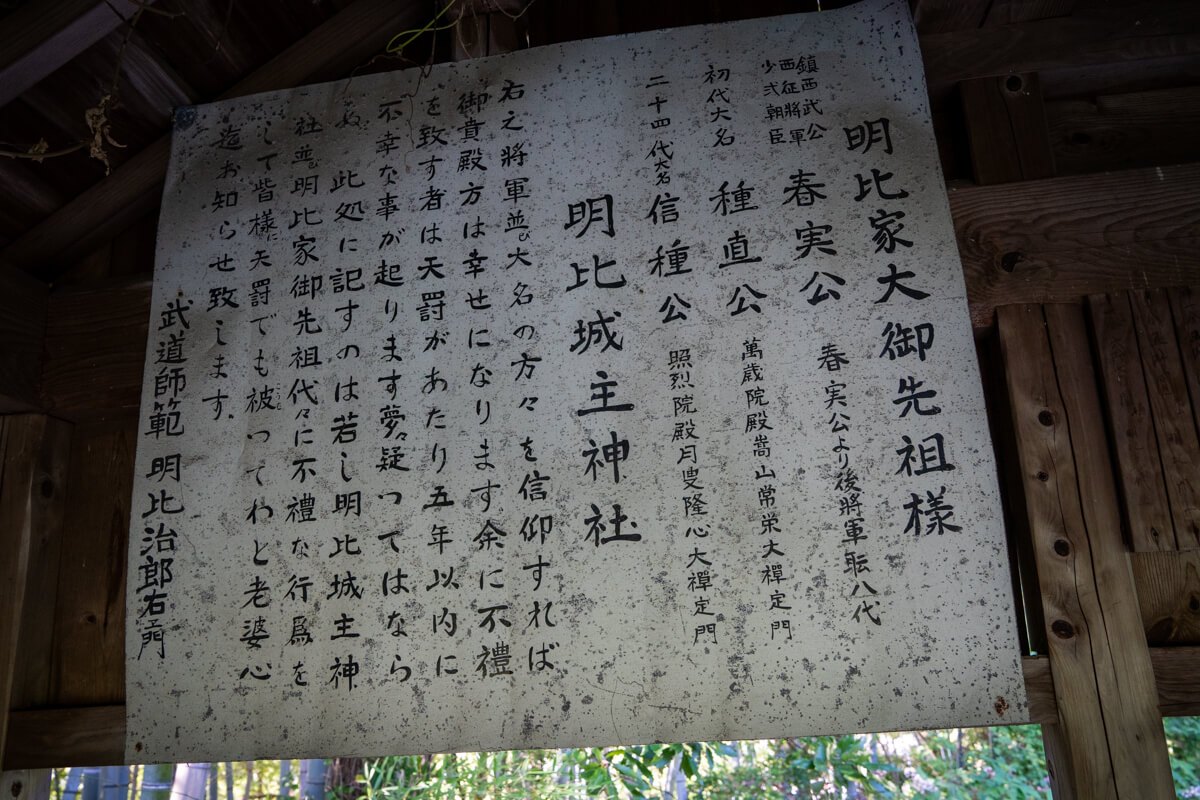 明比家大御先祖様
鎮西武公
西征將軍
少弐朝臣
春実公 春実公より後將軍転八代
初代大名 種直公 萬歳院殿嵩山常栄大禪定門
二十四代大名 信種公 照烈院殿月叟隆心大禪定門
明比城主神社
右之將軍並び大名の方々を信仰すれば
御貴殿方は幸せになります余に不禮
を致す者は天罰があたり五年以内に
不幸な事が起ります夢々疑つてはなら
ぬ 此処に記すのは若し明比城主神
社並び明比家御先祖代々に不禮な行爲を
して皆様に天罰でも被つてわと老婆心
迄お知らせ致します
武道師範 明比治郎右エ門